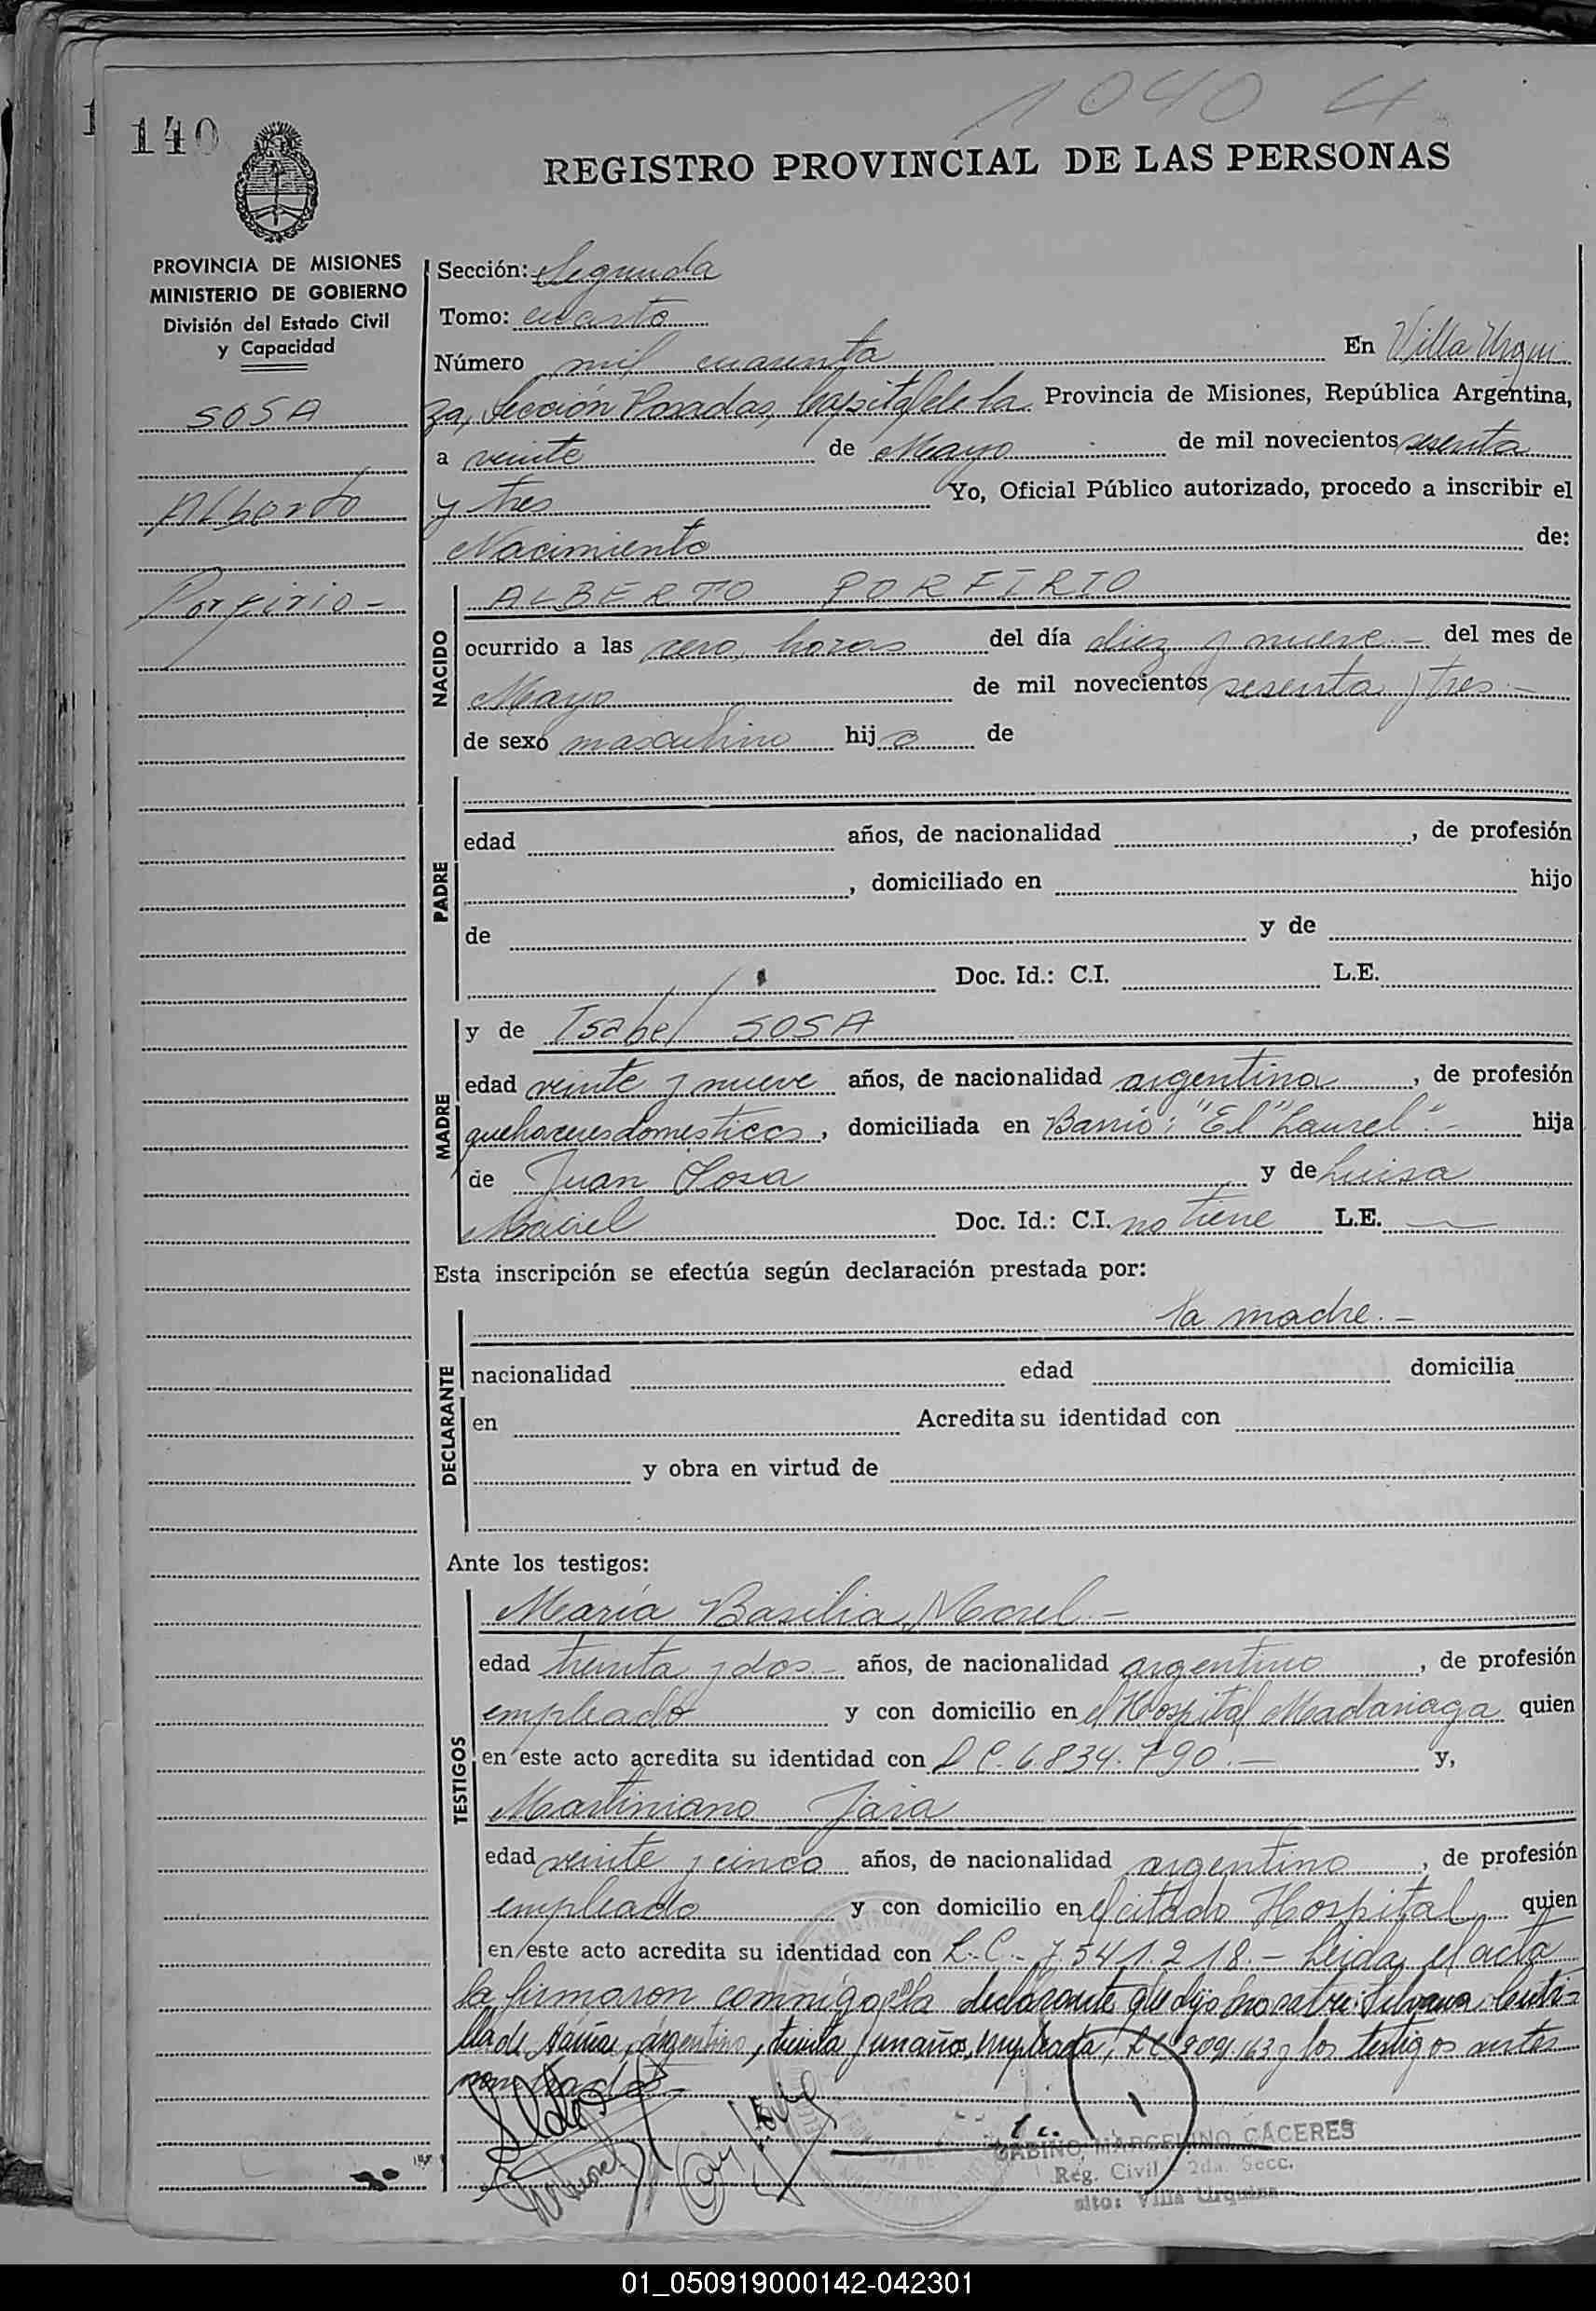 1040 4
140
REGISTRO PROVINCIAL DE LAS PERSONAS
PROVINCIA DE MISIONES
MINISTERIO DE GOBIERNO
División del Estado Civil
y Capacidad
SOSA
Alberto
Porfirio -
Sección: Segunda
Tomo: cuarto
Número mil cuarenta En Villa Urqui
za, Sección Posadas, Capital de la Provincia de Misiones, República Argentina,
a veinte de Mayo de mil novecientos sesenta
y tres Yo, Oficial Público autorizado, procedo a inscribir el
Nacimiento de:
NACIDO
ALBERTO PORFIRIO
ocurrido a las cero horas del día diez y nueve - del mes de
Mayo de mil novecientos sesenta y tres -
de sexo masculino hijo de
PADRE
edad años, de nacionalidad , de profesión
, domiciliado en hijo
de y de
Doc. Id.: C.I. L.E.
MADRE
y de Isabel SOSA
edad veinte y nueve años, de nacionalidad argentina , de profesión
quehaceres domesticos, domiciliada en Barrio: "El Laurel" - hija
de Juan Sosa y de Luisa
Maciel Doc. Id.: C.I. no tiene L.E.
Esta inscripción se efectúa según declaración prestada por:
DECLARANTE
la madre. -
nacionalidad edad domicilia
en Acredita su identidad con
y obra en virtud de
Ante los testigos:
TESTIGOS
María Basilia Morel -
edad treinta y dos - años, de nacionalidad argentino , de profesión
empleado y con domicilio en el Hospital Madariaga quien
en este acto acredita su identidad con L C. 6.834.790. - y,
Martiniano Jara
edad veinte y cinco años, de nacionalidad argentino , de profesión
empleado y con domicilio en el citado Hospital quien
en este acto acredita su identidad con L. C. - 7.541.218. - Leida el acta
la firmaron conmigo la declarante que dijo Silvana
argentina, treinta y un años, empleada, L C y los testigos antes
nombrados -
GABINO MARCELINO CÁCERES
Reg. Civil - 2da. Secc.
sito: Villa Urquiza
01_050919000142-042301